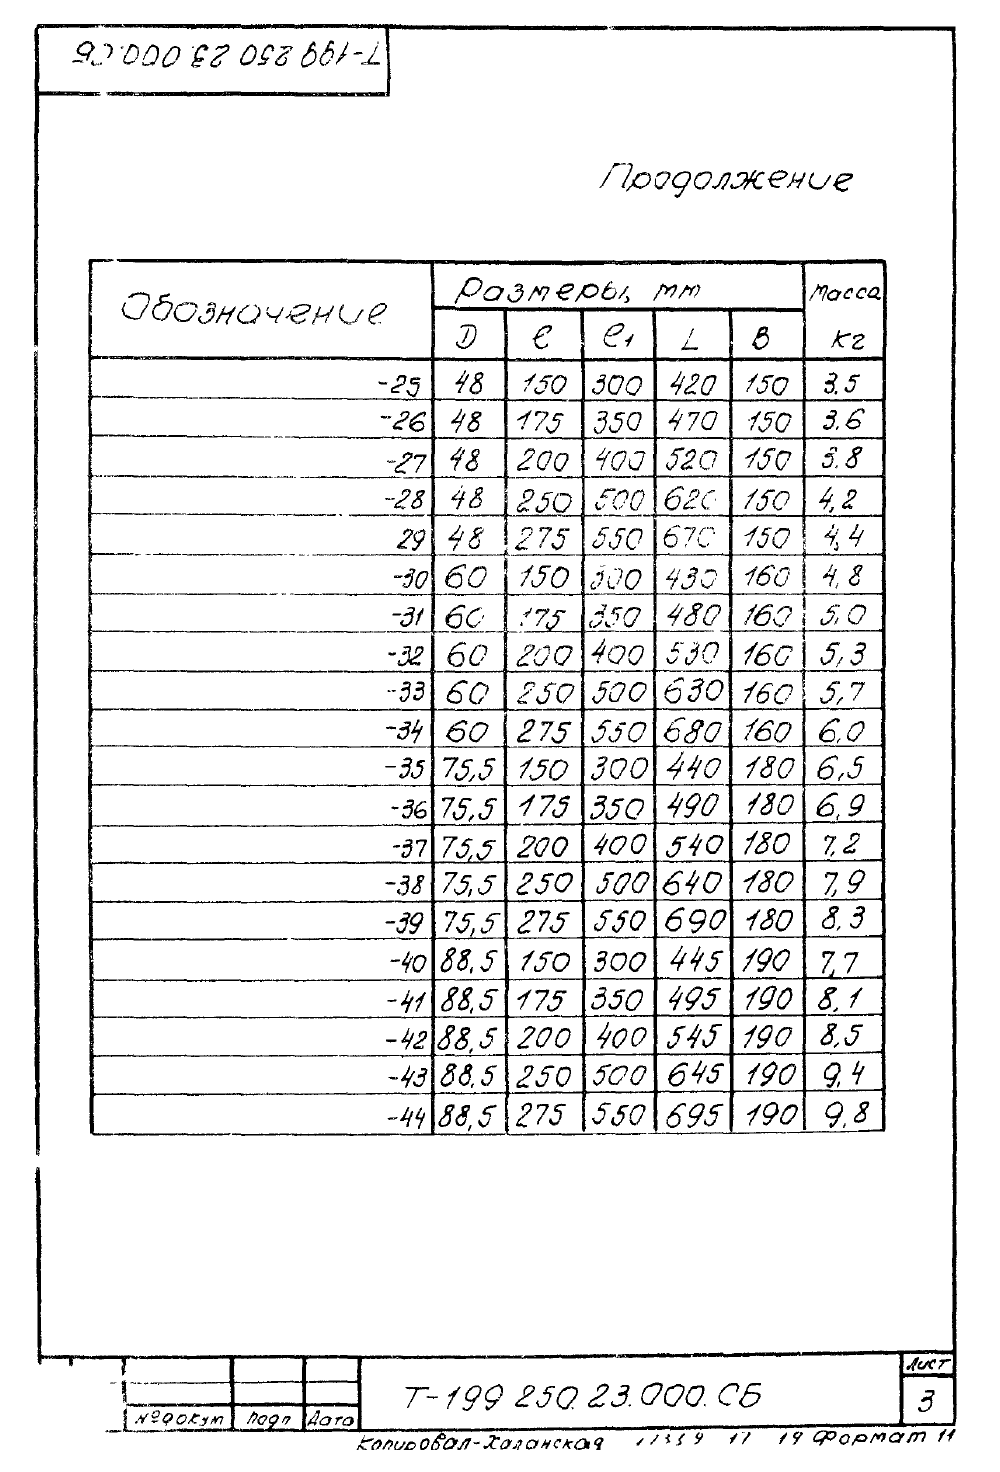 Т-199 250 23.000.СБ
Продолжение
Обозначение Размеры, мм Масса
D ℓ ℓ1 L В кг
-25 48 150 300 420 150 3,5
-26 48 175 350 470 150 3,6
-27 48 200 400 520 150 3,8
-28 48 250 500 620 150 4,2
29 48 275 550 670 150 4,4
-30 60 150 300 430 160 4,8
-31 60 175 350 480 160 5,0
-32 60 200 400 530 160 5,3
-33 60 250 500 630 160 5,7
-34 60 275 550 680 160 6,0
-35 75,5 150 300 440 180 6,5
-36 75,5 175 350 490 180 6,9
-37 75,5 200 400 540 180 7,2
-38 75,5 250 500 640 180 7,9
-39 75,5 275 550 690 180 8,3
-40 88,5 150 300 445 190 7,7
-41 88,5 175 350 495 190 8,1
-42 88,5 200 400 545 190 8,5
-43 88,5 250 500 645 190 9,4
-44 88,5 275 550 695 190 9,8
№ докум Подп Дата
Т-199 250.23.000.СБ
Лист
3
Копировал-Халанская 17 19 Формат 11